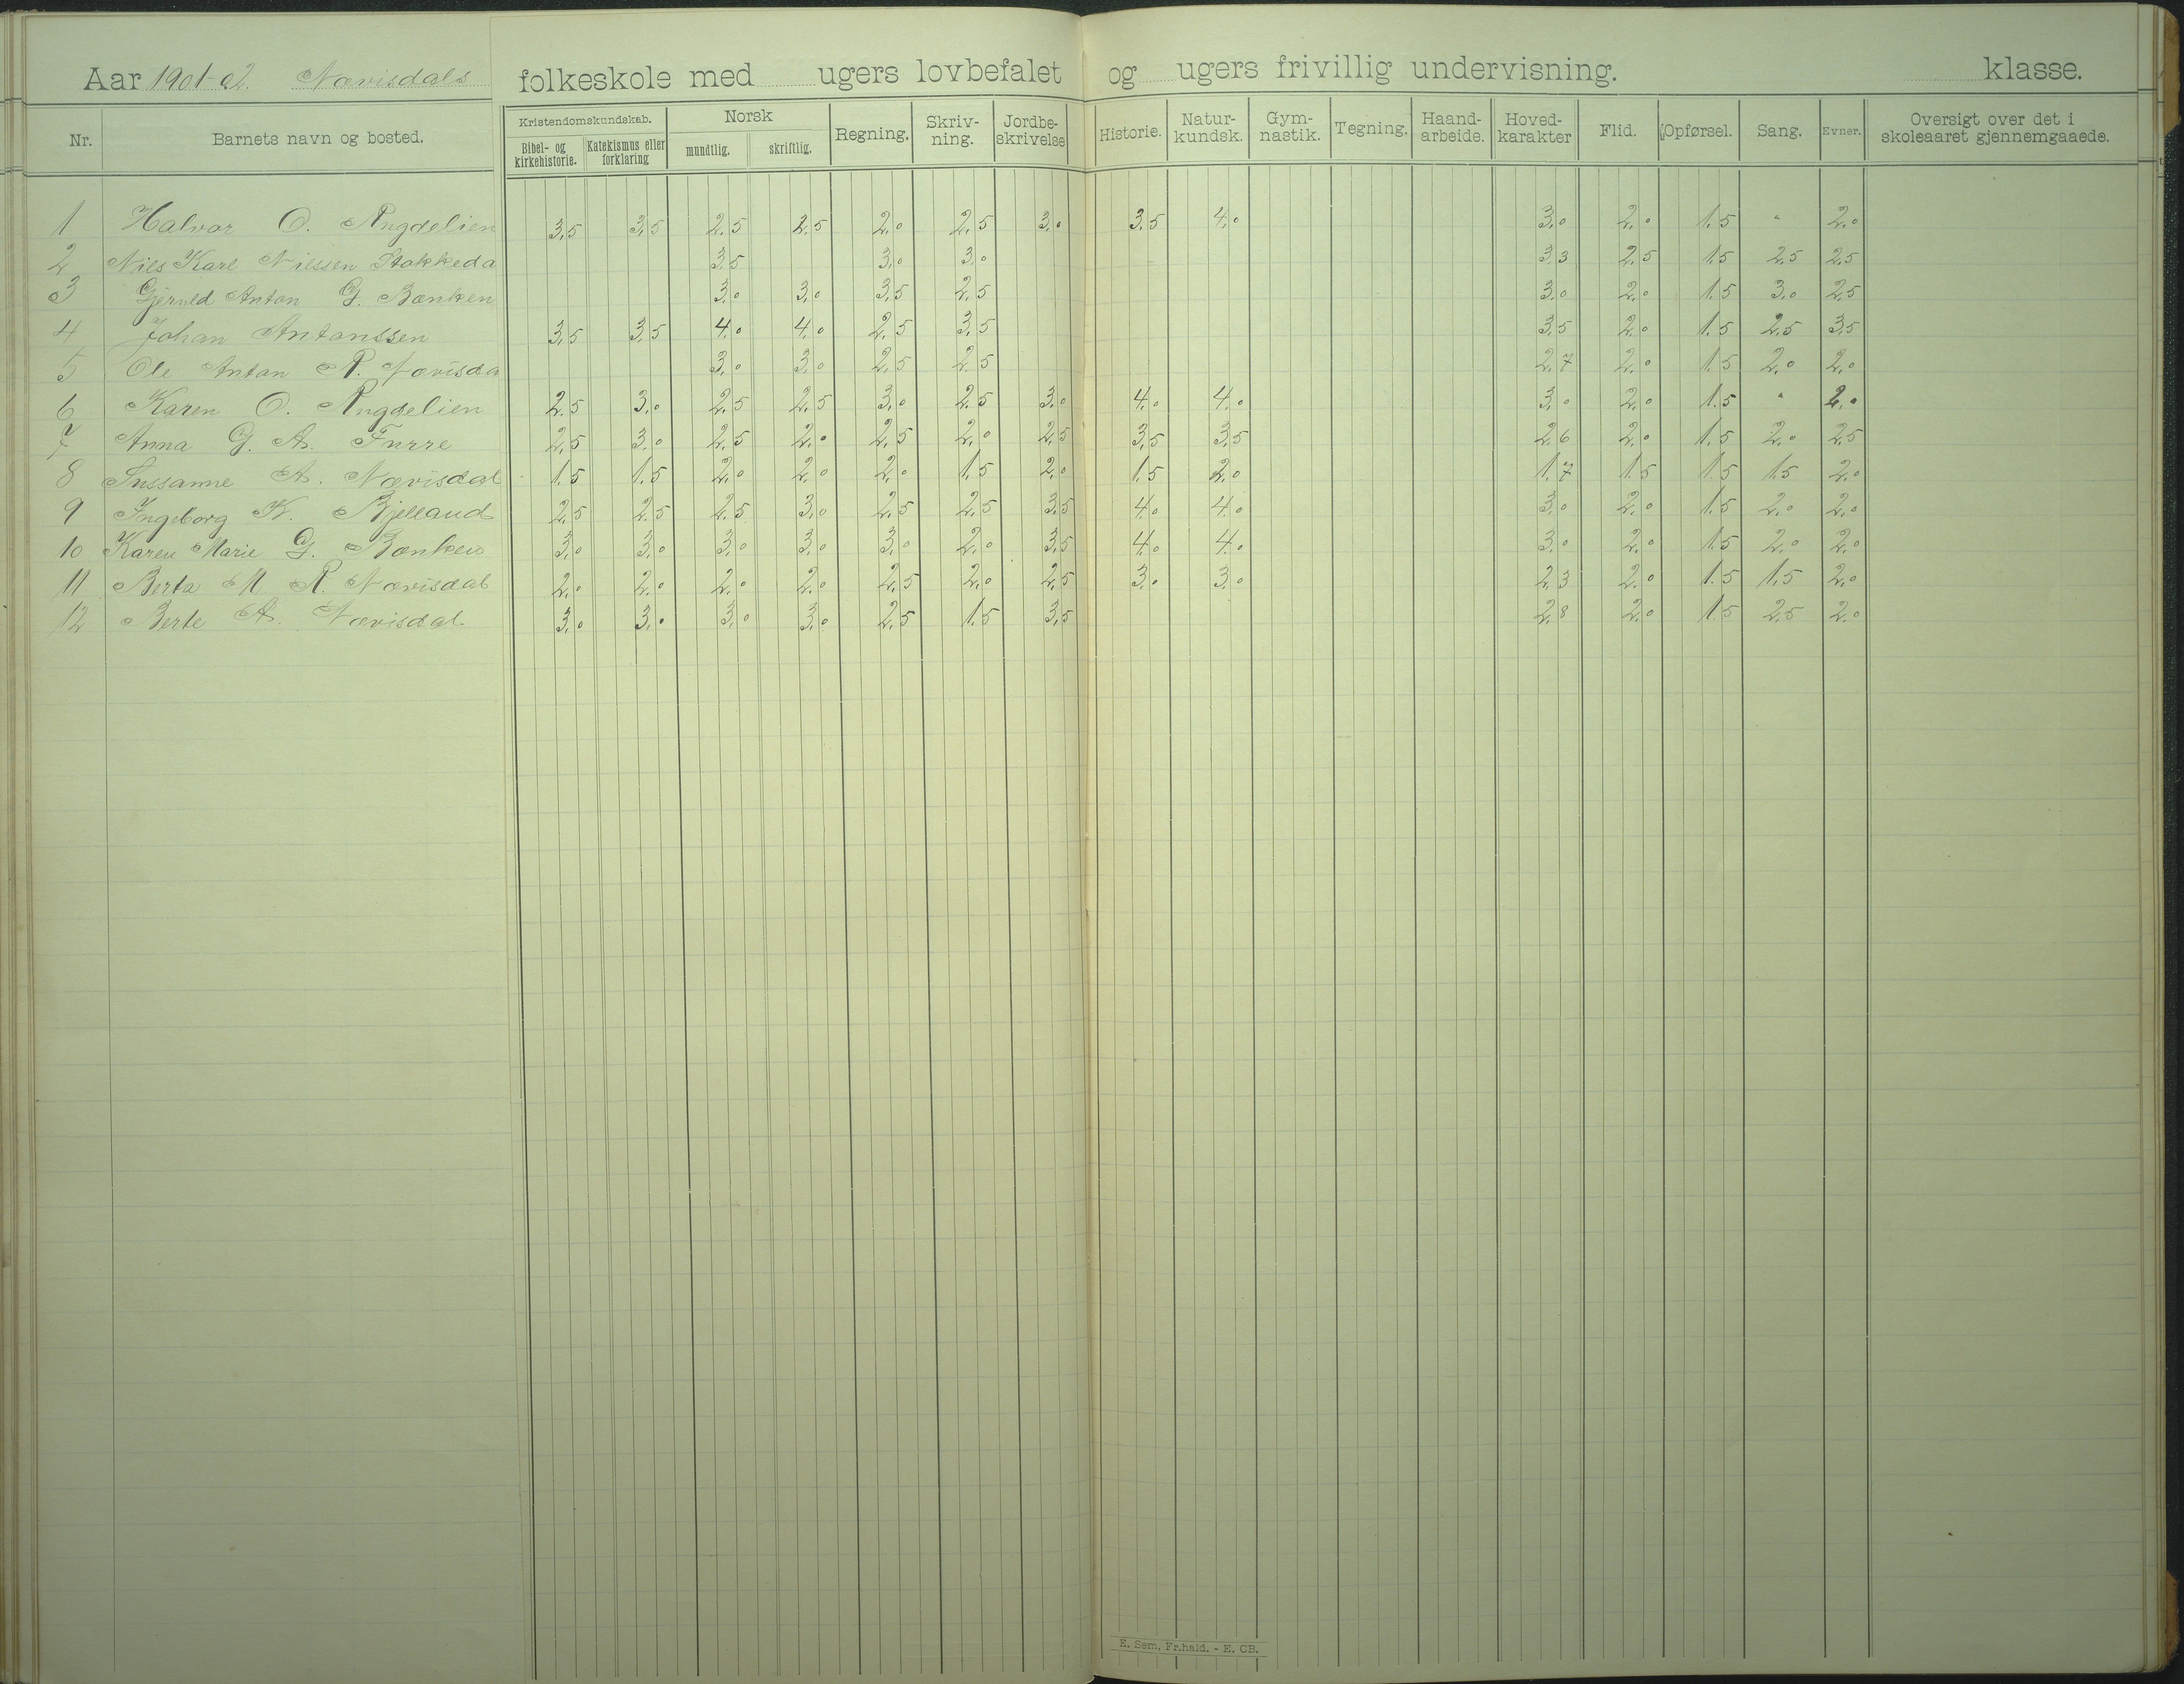 Aar 1901-02. Nævisdals folkeskole med ugers lovbefalet og ugers frivillig undervisning. klasse.
Nr. Barnets navn og bosted. Kristendomskundskab. Bibel- og kirkehistorie. Katekismus eller forklaring Norsk mundtlig. skriftlig. Regning. Skriv-ning. Jordbe-skrivelse Historie. Natur-kundsk. Gym-nastik. Tegning. Haand-arbeide. Hoved-karakter Flid. Opførsel. Sang. Evner. Oversigt over det i skoleaaret gjennemgaaede.
1 Halvor O. Rugdelien 3,5 3,5 2,5 2,5 2,0 2,5 3,0 3,5 4,0 3,0 2,0 1,5 " 2,0
2 Nils Karl Nilssen Stokkeda 3,5 3,0 3,0 3,3 2,5 1,5 2,5 2,5
3 Gjeruld Anton G. Bænken 3,0 3,0 3,5 2,5 3,0 2,0 1,5 3,0 2,5
4 Johan Antonssen 3,5 3,5 4,0 4,0 2,5 3,5 3,5 2,0 1,5 2,5 3,5
5 Ole Anton R. Nævisda 3,0 3,0 2,5 2,5 2,7 2,0 1,5 2,0 2,0
6 Karen O. Rugdelien 2,5 3,0 2,5 2,5 3,0 2,5 3,0 4,0 4,0 3,0 2,0 1,5 " 2,0
7 Anna G. A. Furre 2,5 3,0 2,5 2,0 2,5 2,0 2,5 3,5 3,5 2,6 2,0 1,5 2,0 2,5
8 Sussanne A. Nævisdal 1,5 1,5 2,0 2,0 2,0 1,5 2,0 1,5 2,0 1,7 1,5 1,5 1,5 2,0
9 Ingeborg K. Bjelland 2,5 2,5 2,5 3,0 2,5 2,5 3,5 4,0 4,0 3,0 2,0 1,5 2,0 2,0
10 Karen Marie G. Bænken 3,0 3,0 3,0 3,0 3,0 2,0 3,5 4,0 4,0 3,0 2,0 1,5 2,0 2,0
11 Berta M R. Nævisdal 2,0 2,0 2,0 2,0 2,5 2,0 2,5 3,0 3,0 2,3 2,0 1,5 1,5 2,0
12 Berte A. Nævisdal 3,0 3,0 3,0 3,0 2,5 1,5 3,5 2,8 2,0 1,5 2,5 2,0
E. Sem, Fr.hald. - E. CB.